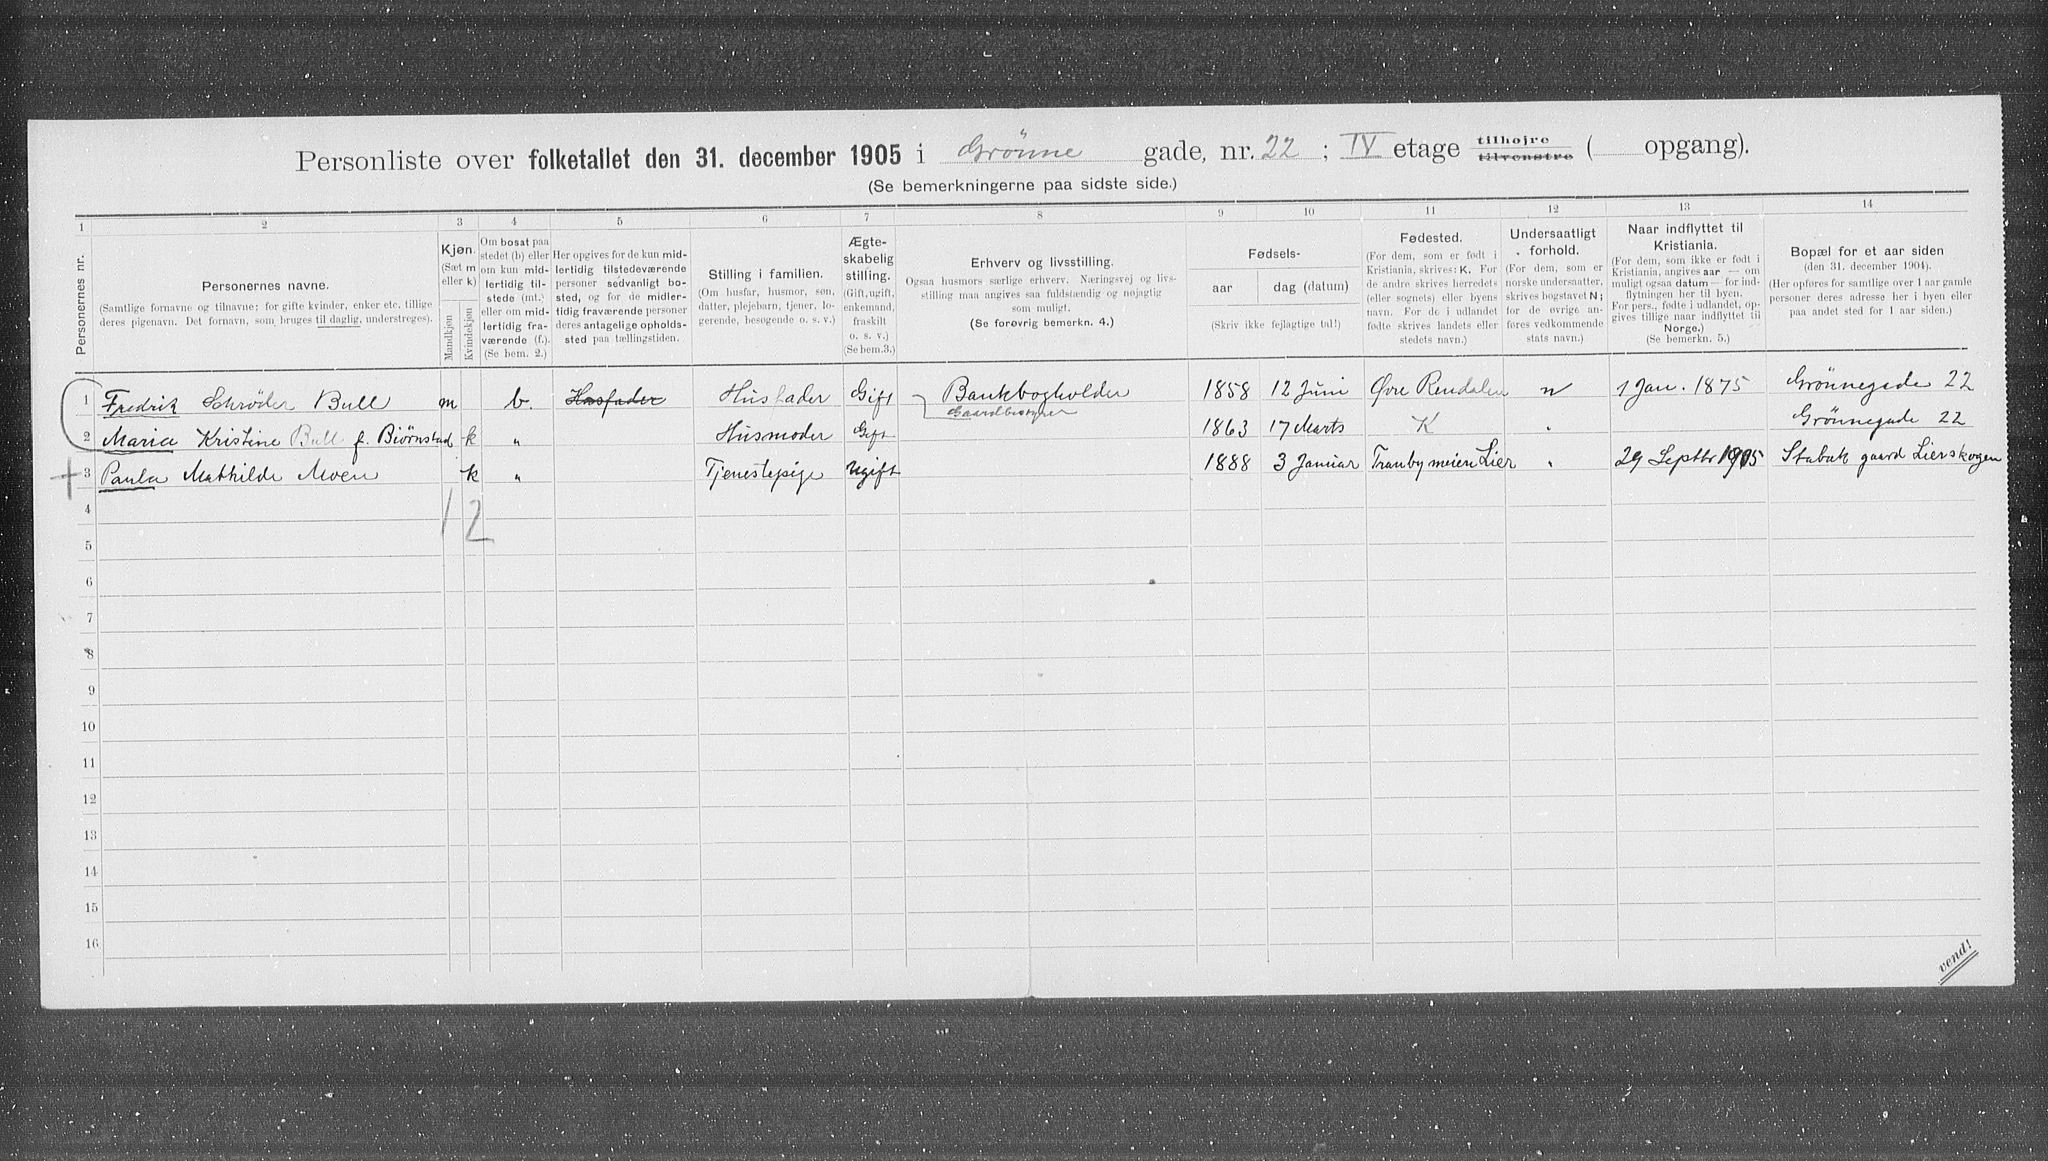 Personliste over folketallet den 31. december 1905 i Grønne gade, nr. 22 ; IV etage tilhøjre tilvenstre ( opgang).
(Se bemerkningerne paa sidste side.)
1 2 3 4 5 6 7 8 9 10 11 12 13 14
Personernes nr.
Personernes navne.
(Samtlige fornavne og tilnavne; for gifte kvinder, enker etc. tillige
deres pigenavn. Det fornavn, som bruges til daglig, understreges).
Kjøn.
(Sæt m
eller k)
Mandkjøn
Kvindekjøn
Om bosat paa
stedet (b) eller
om kun mid-
lertidig til-
stede (mt.)
eller om mid-
lertidig fra-
værende (f.).
(Se bem. 2.)
Her opgives for de kun mid-
lertidig tilstedeværende
personer sedvanligt bo-
sted, og for de midler-
tidig fraværende personer
deres antagelige opholds-
sted paa tællingstiden.
Stilling i familien.
(Om husfar, husmor, søn,
datter, plejebarn, tjener, lo-
gerende, besøgende o. s. v.)
Ægte-
skabelig
stilling.
(Gift, ugift,
enkemand,
fraskilt
o. s. v.)
(Se bem.3.)
Erhverv og livsstilling.
Ogsaa husmors særlige erhverv. Næringsvej og livs-
stilling maa angives saa fuldstændig og nøjagtig
som muligt.
(Se forøvrig bemerkn. 4.)
Fødsels-
aar
dag (datum)
(Skriv ikke fejlagtige tal!)
Fødested.
(For dem, som er født i
Kristiania, skrives: K. For
de andre skrives herredets
(eller sognets) eller byens
navn. For de i udlandet
fødte skrives landets eller
stedets navn.)
Undersaatligt
forhold.
(For dem, som er
norske undersaatter,
skrives bogstavet N;
for de øvrige an-
føres vedkommende
stats navn.)
Naar indflyttet til
Kristiania.
(For dem, som ikke er født i
Kristiania, angives aar — om
muligt ogsaa datum — for ind-
flytningen her til byen.
For pers., fødte i udlandet, op-
gives tillige naar indflyttet til
Norge.)
(Se bemerkn. 5.)
Bopæl for et aar siden
(den 31. december 1904).
(Her opføres for samtlige over 1 aar gamle
personer deres adresse her i byen eller
paa andet sted for 1 aar siden.)
1 Fredrik Schrøder Bull m b. Husfader Husfader Gift Bankbogholder 1858 12 Juni Øvre Rendalen n 1 Jan. 1875 Grønnegade 22
Gaardbestyrer
2 Maria Kristine Bull f. Biørnstad k " Husmoder Gift 1863 17 Marts K " Grønnegade 22
3 Paula Mathilde Moen k " Tjenestepige Ugift 1888 3 Januar Tranby meien Lier " 29 Septbr 1905 Stabæk gaard Lierskogen
1 2
4
5
6
7
8
9
10
11
12
13
14
15
16
vend!